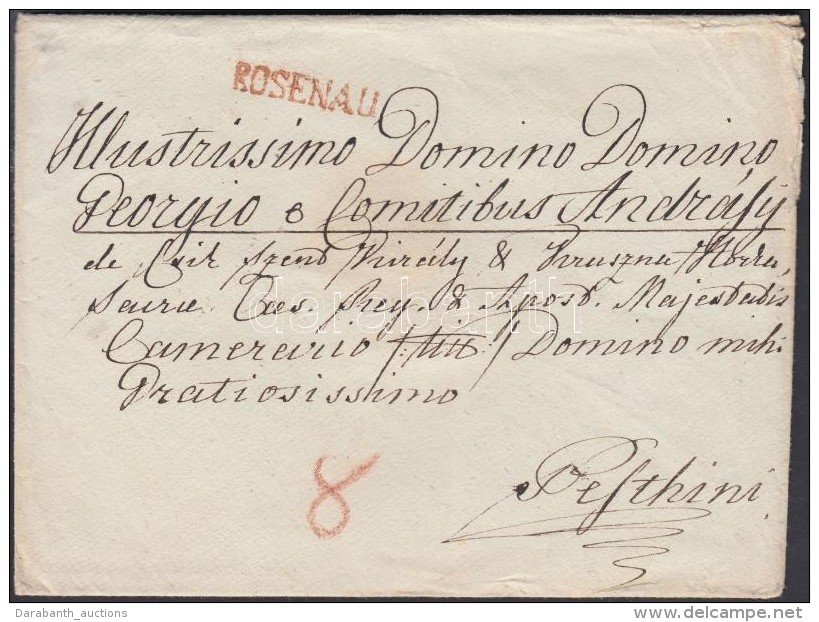 ROSENAU
Illustrissimo Domino Domino
Georgio e Comitibus Andrásy
de Csik Szent Király & Kraszna Horka,
Sacrae Caes. Reg. & Apost. Majestatis
Camerario /: titt :/ Domino mihi
Gratiosissimo
8
Pesthini
darabanth
Darabanth_auctions
delcampe.net